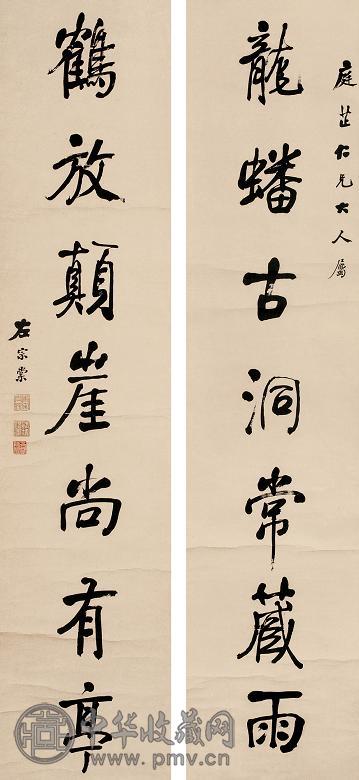 庭芷仁兄大人屬
龍蟠古洞常藏雨
鶴放顛崖尚有亭
左宗棠
中华收藏网
www.pmv.cn